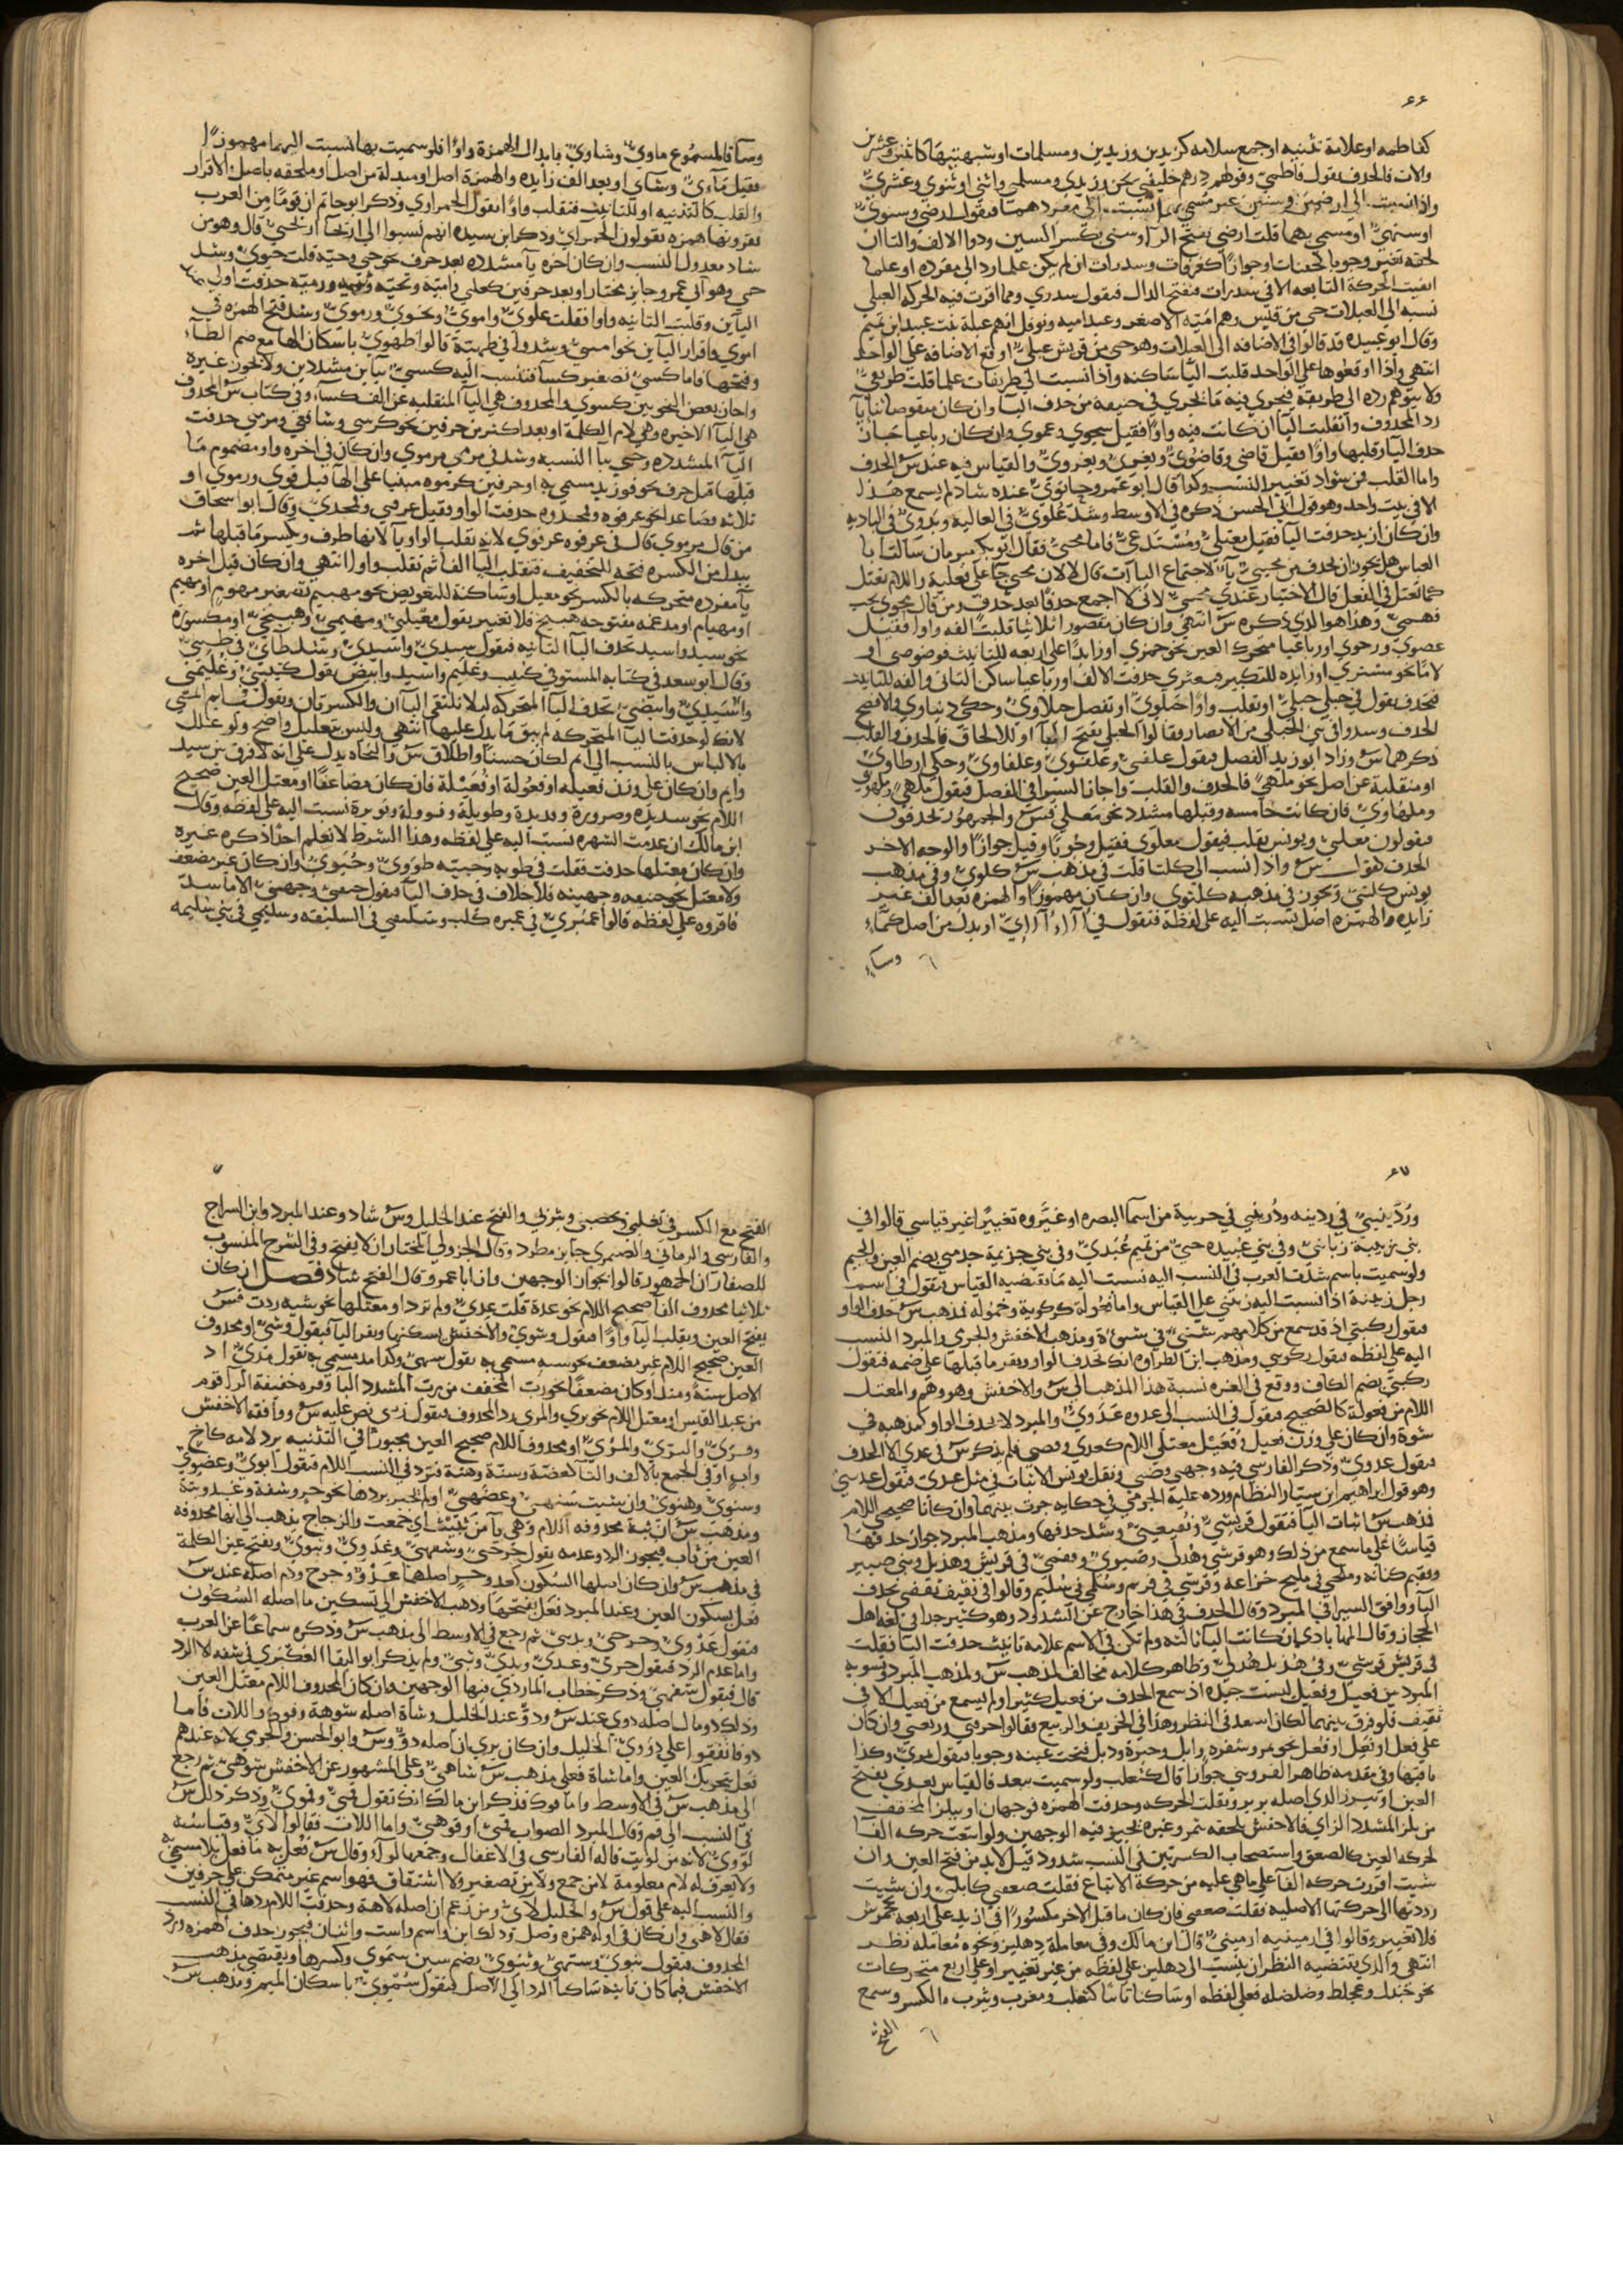 ٦٦
كفاطمه او علامة تثنيه او جمع سلامه كزيدين وزيدين ومسلمات او شبهتيهما كاثنين وعشرين
والات فالحذف تقول فاطمي وقولهم درهم خليفتي لحن وزيدي ومسلمي واثني او ثنوي وعشري
واذا نسبت الى ارضين وسنين غير مسمى بهما نسبت الى مفردهما فتقول ارضي وسنوي
او سنهي او مسمى بهما قلت ارضي بفتح الرا او سني بكسر السين وذوا الالف والتا ان
لحقه تغيير وجوبا كجفنات او جوازا كغرفات وسدرات ان لم يكن علما رد الى مفرده او علما
ابقيت الحركة التابعه الا في سدرات فتفتح الدال فتقول سدري ومما اقرت فيه الحركه العبلي
نسبه الى العبلات حي من قريش وهم امية الاصغر وعبد اميه ونوفل امهم عبلة بنت عبيد ابن تميم
وقال ابو عبيده قد قالوا في الاضافه الى العبلات وهو حي من قريش عبلي اوقع الاضافه على الواحد
انتهى واذا اوقعوها على الواحد قلبت اليا ساكنه واذا نسبت الى طريفات علما قلت طريفي
ولا يتوهم رده الى طريفة فيجري فيه ما يجري في حنيفة من حذف اليا وان كان منقوصا ثنائيا
رد المحذوف وانقلبت اليا ان كانت فيه واوا فقيل شجوي وعموي وان كان رباعيا جاز
حذف اليا وقلبها واوا فقيل قاضي وقاضوي ويغزي ويغزوي والقياس فيه عند س الحذف
واما القلب فمن شواذ تغيير النسب وكذا قال ابو عمرو حانوي عنده شاذ لم يسمع هذا
الا في بيت واحد وهو قول ابي الحسن ذكره في الاوسط وشذ علوي في العالية وبدوي في البادية
وان كان ازيد حذفت اليا فقيل معتلي ومستدعي فاما محيي فقال ابو بكر مبرمان سالت ابا
العباس هل يجوز ان يحذف من محيي يا لاجتماع الياات فقال لا لان محيي جا على فعليه واللام تعتل
كما تعتل في الفعل قال الاختيار عندي محيي لاني لا اجمع حذفا بعد حذف ومن قال محوي يجب
فهسي وهذا هو الذي ذكره س انتهى وان كان مقصورا ثلاثيا قلبت الفه واوا فقيل
عصوي ورحوي او رباعيا متحرك العين نحو جمزي او زايدا على اربعه للتانيث فوضوضى او
لاما نحو مشتري او زايده للتكثير قبعثرى حذفت الالف او رباعيا ساكن الثاني والفه للتانيث
فتحذف تقول في حبلى حبلي او تقلب واوا حبلوي او تفصل حبلاوي وحكى دنياوي والافصح
الحذف وشذوا في بني الحبلى من الانصار وقالوا الحبلي بفتح البا او للالحاق فالحذف والقلب
ذكرهما س وزاد ابو زيد الفصل فيقول علقي وعلقوي وعلقاوي وحكى ارطاوي
او منقلبة عن اصل نحو ملهى فالحذف والقلب واجاز السيرافي الفصل فيقول ملهي وملهوي
وملهاوي فان كانت خامسه وقبلها مشدد نحو معلى فس والجمهور تحذفون
فيقولون معلي ويونس يقلب فيقول معلوي فقيل وجوبا وقيل جوازا والوجه الاخر
الحذف كقول س واذا نسب الى كلتا قلت في مذهب س كلوي وفي مذهب
يونس كلتي ويجوز في مذهبه كلتوي وان كان مهموزا والهمزة بعد الف غير
زايده والهمزه اصل نسبت اليه على لفظه فتقول في آاء آائي او بدل من اصل كماء
وساء
وسآ فالمسموع ماوي وشاوي بابدال الهمزة واوا فلو سميت بهما نسبت اليهما مهموزا
فقيل ماءي وشاي او بعد الف زايده والهمزة اصل او مبدلة من اصل او ملحقه باصل الاقرار
والقلب كالتثنيه او للتانيث فتقلب واوا تقول الحمراوي وذكر ابو حاتم ان قوما من العرب
يقرونها همزه يقولون الحمراي وذكر ابن سيده انهم نسبوا الى اريحا اريحي قال وهو من
شاذ معدول النسب وان كان اخره يا مشدده بعد حرف نحو حي وحية قلت حيوي وشذ
حيي وهو ابي عمرو جايز مختار او بعد حرفين كعلي وامية وتحية وقصيه ورمية حذفت اولى
اليأين وقلبت الثانيه واوا فقلت علوي واموي وتحوي ورموي وشذ فتح الهمزه في
اموي واقرار اليأين نحو اميي وشذوا في طهية قالوا طهوي باسكان الها مع ضم الطا
وفتحها فاما كسي تصغير كسا فتنسب اليه كسيي بيأين مشددين ولا يجوز غيره
واجاز بعض النحويين كسوي والمحذوف هي اليا المنقلبه عن الف كسا وفي كتاب س المحذوف
هي اليا الاخيره وهي لام الكلمة او بعد اكثر من حرفين نحو كرسي وشافعي ومرمي حذفت
اليا المشدده وجي بيا النسبه وشذ في مرمي مرموي وان كان في اخره واو مضموم ما
قبلها قبل حرف نحو فوزيد مسمى به او حرفين كرموه مبنيا على الها قيل فوي ورموي او
ثلاثه فصاعدا نحو عرقوه وقمحدوه حذفت الواو فقيل عرقي وقمحدي وقال ابو اسحاق
من قال مرموي قال في عرقوه عرقوي لانه يقلب الواو يا لانها طرف ويكسر ما قبلها ثم
يبدل من الكسره فتحه للتخفيف فتقلب اليا الفا ثم تقلب واوا انتهى وان كان قبل اخره
يا مفرده متحركه بالكسر نحو مغيل او ساكنة للتعويض نحو مهييم تصغير مهوم او مهيم
او مهيام او مدغمه مفتوحه هبيخ فلا تغيير تقول مغيلي ومهييمي وهبيخي او مكسوره
نحو سيد واسيد تحذف اليا الثانيه فيقول سيدي واسيدي وشذ طاي في طيي
وقال ابو سعد في كتابه المستوفى كتيب وغليم واسيد وابيض تقول كتيبي وغليمي
واسيدي وابيضي تحذف اليا المتحركه ليلا تلتقي الياآن والكسرتان ويقول في ايم ايمي
لانك لو حذفت اليا المتحركه لم يبق ما يدل عليها انتهى وليس بتعليل واضح ولو علل
بالالباس بالنسب الى ايم لكان حسنا واطلاق س والنحاه يدل على انه لا فرق بين سيد
وايم وان كان على وزن فعيله او فعولة او فعيلة فان كان مضاعفا او معتل العين صحيح
اللام نحو سديده وصرورة ومديدة وطويلة وقوولة ونويرة نسبت اليه على لفظه وقال
ابن مالك ان عدمت الشهره نسبت اليه على لفظه وهذا الشرط لا نعلم احدا ذكره غيره
وان كان معتلها حذفت فقلت في طويه وحييه طووي وحيوي وان كان غير مضعف
ولا معتل نحو حنيفه وجهينه فلا خلاف في حذف اليا فيقول حنفي وجهني الا ما شذ
فاقروه على لفظه قالوا عميري في عميره كلب وسليقي في السليقه وسليمي في بني سليمه
٦٧
ورديني في ردينه وخريبي في خريبة من اسما البصره او غيروه تغييرا غير قياسي قالوا في
بني زبينة زباني وفي بني عبيده حي من تميم عبدي وفي بني جذيمة جذمي بضم العين والجيم
ولو سميت باسم شذت العرب في النسب اليه نسبت اليه ما يقتضيه القياس فتقول في اسم
رجل زبينة اذا نسبت اليه زبني على القياس واما فعولة كركوبة وحمولة فمذهب س حذف الواو
فيقول ركبي اذ قد سمع من كلامهم شنئي في شنوءة ومذهب الاخفش والجرمي والمبرد النسب
اليه على لفظه فيقول ركوبي ومذهب ابن الطراوه انك تحذف الواو ويقر ما قبلها على ضمه فتقول
ركبي بضم الكاف ووقع في الغره نسبة هذا المذهب الى س والاخفش وهو وهم والمعتل
اللام من فعولة كالصحيح فيقول في النسب الى عدوه عدوي والمبرد لا يحذف الواو كمذهبه في
شنوة وان كان على وزن فعيل وفعيل معتلي اللام كعدي وقصي فلم يذكر س في عدي الا الحذف
فيقول عدوي وذكر الفارسي فيه وجهين وقصي ونقل يونس الاثبات في مثل عدي فتقول عديي
وهو قول ابراهيم ابن سيار النظام ورده عليه الجرمي في حكايه جرت بينهما وان كانا صحيحي اللام
فمذهب س اثبات اليا فتقول قريشي وثقيفي وشذ حذفها ومذهب المبرد جواز حذفها
قياسا على ما سمع من ذلك وهو قرشي وهذلي
وفقيم كنانه وملحي في مليح خزاعه وقرشي في قريش وسلمي في سليم وقالوا في ثقيف ثقفي بحذف
اليا ووافق السيرافي المبرد وقال الحذف في هذا خارج عن الشذوذ وهو كثير جدا في لغة اهل
الحجاز وقال المهاباذي ان كانت اليا ثالثة ولم تكن في الاسم علامه تانيث حذفت اليا فقلت
في قريش قرشي وفي هذيل هذلي وظاهر كلامه مخالف لمذهب س ولمذهب المبرد وتسويه
المبرد بين فعيل وفعيل ليست جيده اذ سمع الحذف من فعيل كثيرا ولم يسمع من فعيل الا في
ثقيف فلو فرق بينهما لكان اسعد في النظر وهذا في الخريف والربيع فقالوا خرفي وربعي وان كان
على فعل او فعل او فعل نحو نمر وشقره وابل وحبرة ودئل فتحت عينه وجوبا فيقول نمري وكذا
باقيها وفي مقدمه طاهر القزويني جوازا قال كتغلب ولو سميت بيعد فالقياس يعدي بفتح
العين او تيرر الذي اصله يرير ونقلت الحركه وحذفت الهمزه فوجهان او ببلز المخفف
من بلز المشدد الزاي فالاخفش يلحقه بنمر وغيره يجيز فيه الوجهين ولو اتبعت حركه الفا
لحركه العين كالصعق واستصحاب الكسرتين في النسب شذوذ قيل لا بد من فتح العين وان
شيت اقررت حركه الفا على ما هي عليه من حركة الاتباع فقلت صعقي كابلي وان شيت
رددتها الى حركتها الاصليه فقلت صعقي فان كان ما قبل الاخر مكسورا في ازيد على اربعه كجحمرش
فلا تغيير وقالوا في ارمينيه ارميني قال ابن مالك وفي معاملة دهليز ونحوه معامله نظر
انتهى والذي يقتضيه النظر ان ينسب الى دهليز على لفظه من غير تغيير او على اربع متحركات
نحو جندل وعجلط وضلضله فعلى لفظه او ساكنا ثانيا كتغلب ومغرب ويثرب فالكسر وسمع
الفتح
الفتح مع الكسر في تغلبي ويحصبي ويثربي والفتح عند الخليل وس شاذ وعند المبرد وابن السراج
والفارسي والرماني والصيمري جايز مطرد وقال الجزولي المختار ان لا يفتح وفي الشرح المنسوب
للصفار ان الجمهور قالوا بجواز الوجهين وان ابا عمرو قال الفتح شاذ فصل ان كان
ثلاثيا محذوف الفا صحيح اللام نحو عدة قلت عدي ولم ترد او معتلها نحو شيه ردت فس
يفتح العين ويقلب اليا واوا فيقول وشوي والاخفش يسكنها ويقر اليا فيقول وشيي او محذوف
العين صحيح اللام غير مضعف نحو سه مسمى به تقول سهي وكذا مذ مسمى به تقول مذي اذ
الاصل سته ومنذ او كان مضعفا نحو رب المخفف من رب المشدد البا وقره خفيفة الرا قوم
من عبد القيس او معتل اللام نحو يري والمري رد المحذوف فيقول ربي نص عليه س ووافقه الاخفش
وقري واليري والمرئي او محذوف اللام صحيح العين مجبورا في التثنيه برد لامه كاخ
واب او في الجمع بالالف والتا كعضة وسنة وهنة فترد في النسب اللام فتقول ابوي وعضوي
وسنوي وهنوي وان شيت سنهي وعضهي او لم تجبر بردها نحو حر وشفة وغد وثبة
ومذهب س ان ثبة محذوفه اللام وهي يا من ثبيت اي جمعت والزجاج يذهب الى انها محذوفه
العين من ثاب فيجوز الرد وعدمه تقول حرحي وشفهي وغدوي وثبوي وبفتح عين الكلمة
في مذهب س وان كان اصلها السكون كغد وحر اصلها غدو وحرح ودم اصله عند س
فعل بسكون العين وعند المبرد فعل بفتحها وذهب الاخفش الى تسكين ما اصله السكون
فيقول غدوي وحرحي ويديي ثم رجع في الاوسط الى مذهب س وذكره سماعا عن العرب
واما عدم الرد فيقول حري وغدي ويدي وثبي ولم يذكر ابو البقا العكبري في شفه الا الرد
قال فيقول شفهي وذكر خطاب الماردي فيها الوجهين وان كان المحذوف اللام معتل العين
وذلك ذو مال اصله ذوي عند س وذو عند الخليل وشاة اصله شوهة وفوك واللات فاما
ذو فاتفقوا على ذووي الخليل وان كان يرى ان اصله ذو وس وابو الحسن والجرمي لانه عندهم
فعل بتحريك العين واما شاة فعلى مذهب س شاهي وعلى المشهور عن الاخفش شوهي ثم رجع
الى مذهب س في الاوسط واما فوك فذكر ابن مالك انك تقول فمي وفموي وذكر ذلك س
في النسب الى فم وقال المبرد الصواب فمي او فوهي واما اللات فقالوا لاي وقياسه
لووي لانه من لويت قاله الفارسي في الاغفال وجمعها لواء وقال س نفعل به ما فعل بلا مسمى به
ولا يعرف له لام معلومة لا من جمع ولا من تصغير ولا اشتقاق فهو اسم غير متمكن على حرفين
والنسب اليه على قول س والخليل لائي ومن زعم ان اصله لاهة وحذفت اللام ردها في النسب
فقال لاهي وان كان في اوله همزه وصل وذلك ابن واسم واست واثنان فيجوز حذف الهمزه ورد
المحذوف فتقول بنوي وستهي وثنوي بضم سين سموي وكسرها ويقتضي مذهب
الاخفش فيما كان ثانيه ساكنا الرد الى الاصل فيقول سموي باسكان الميم ومذهب س